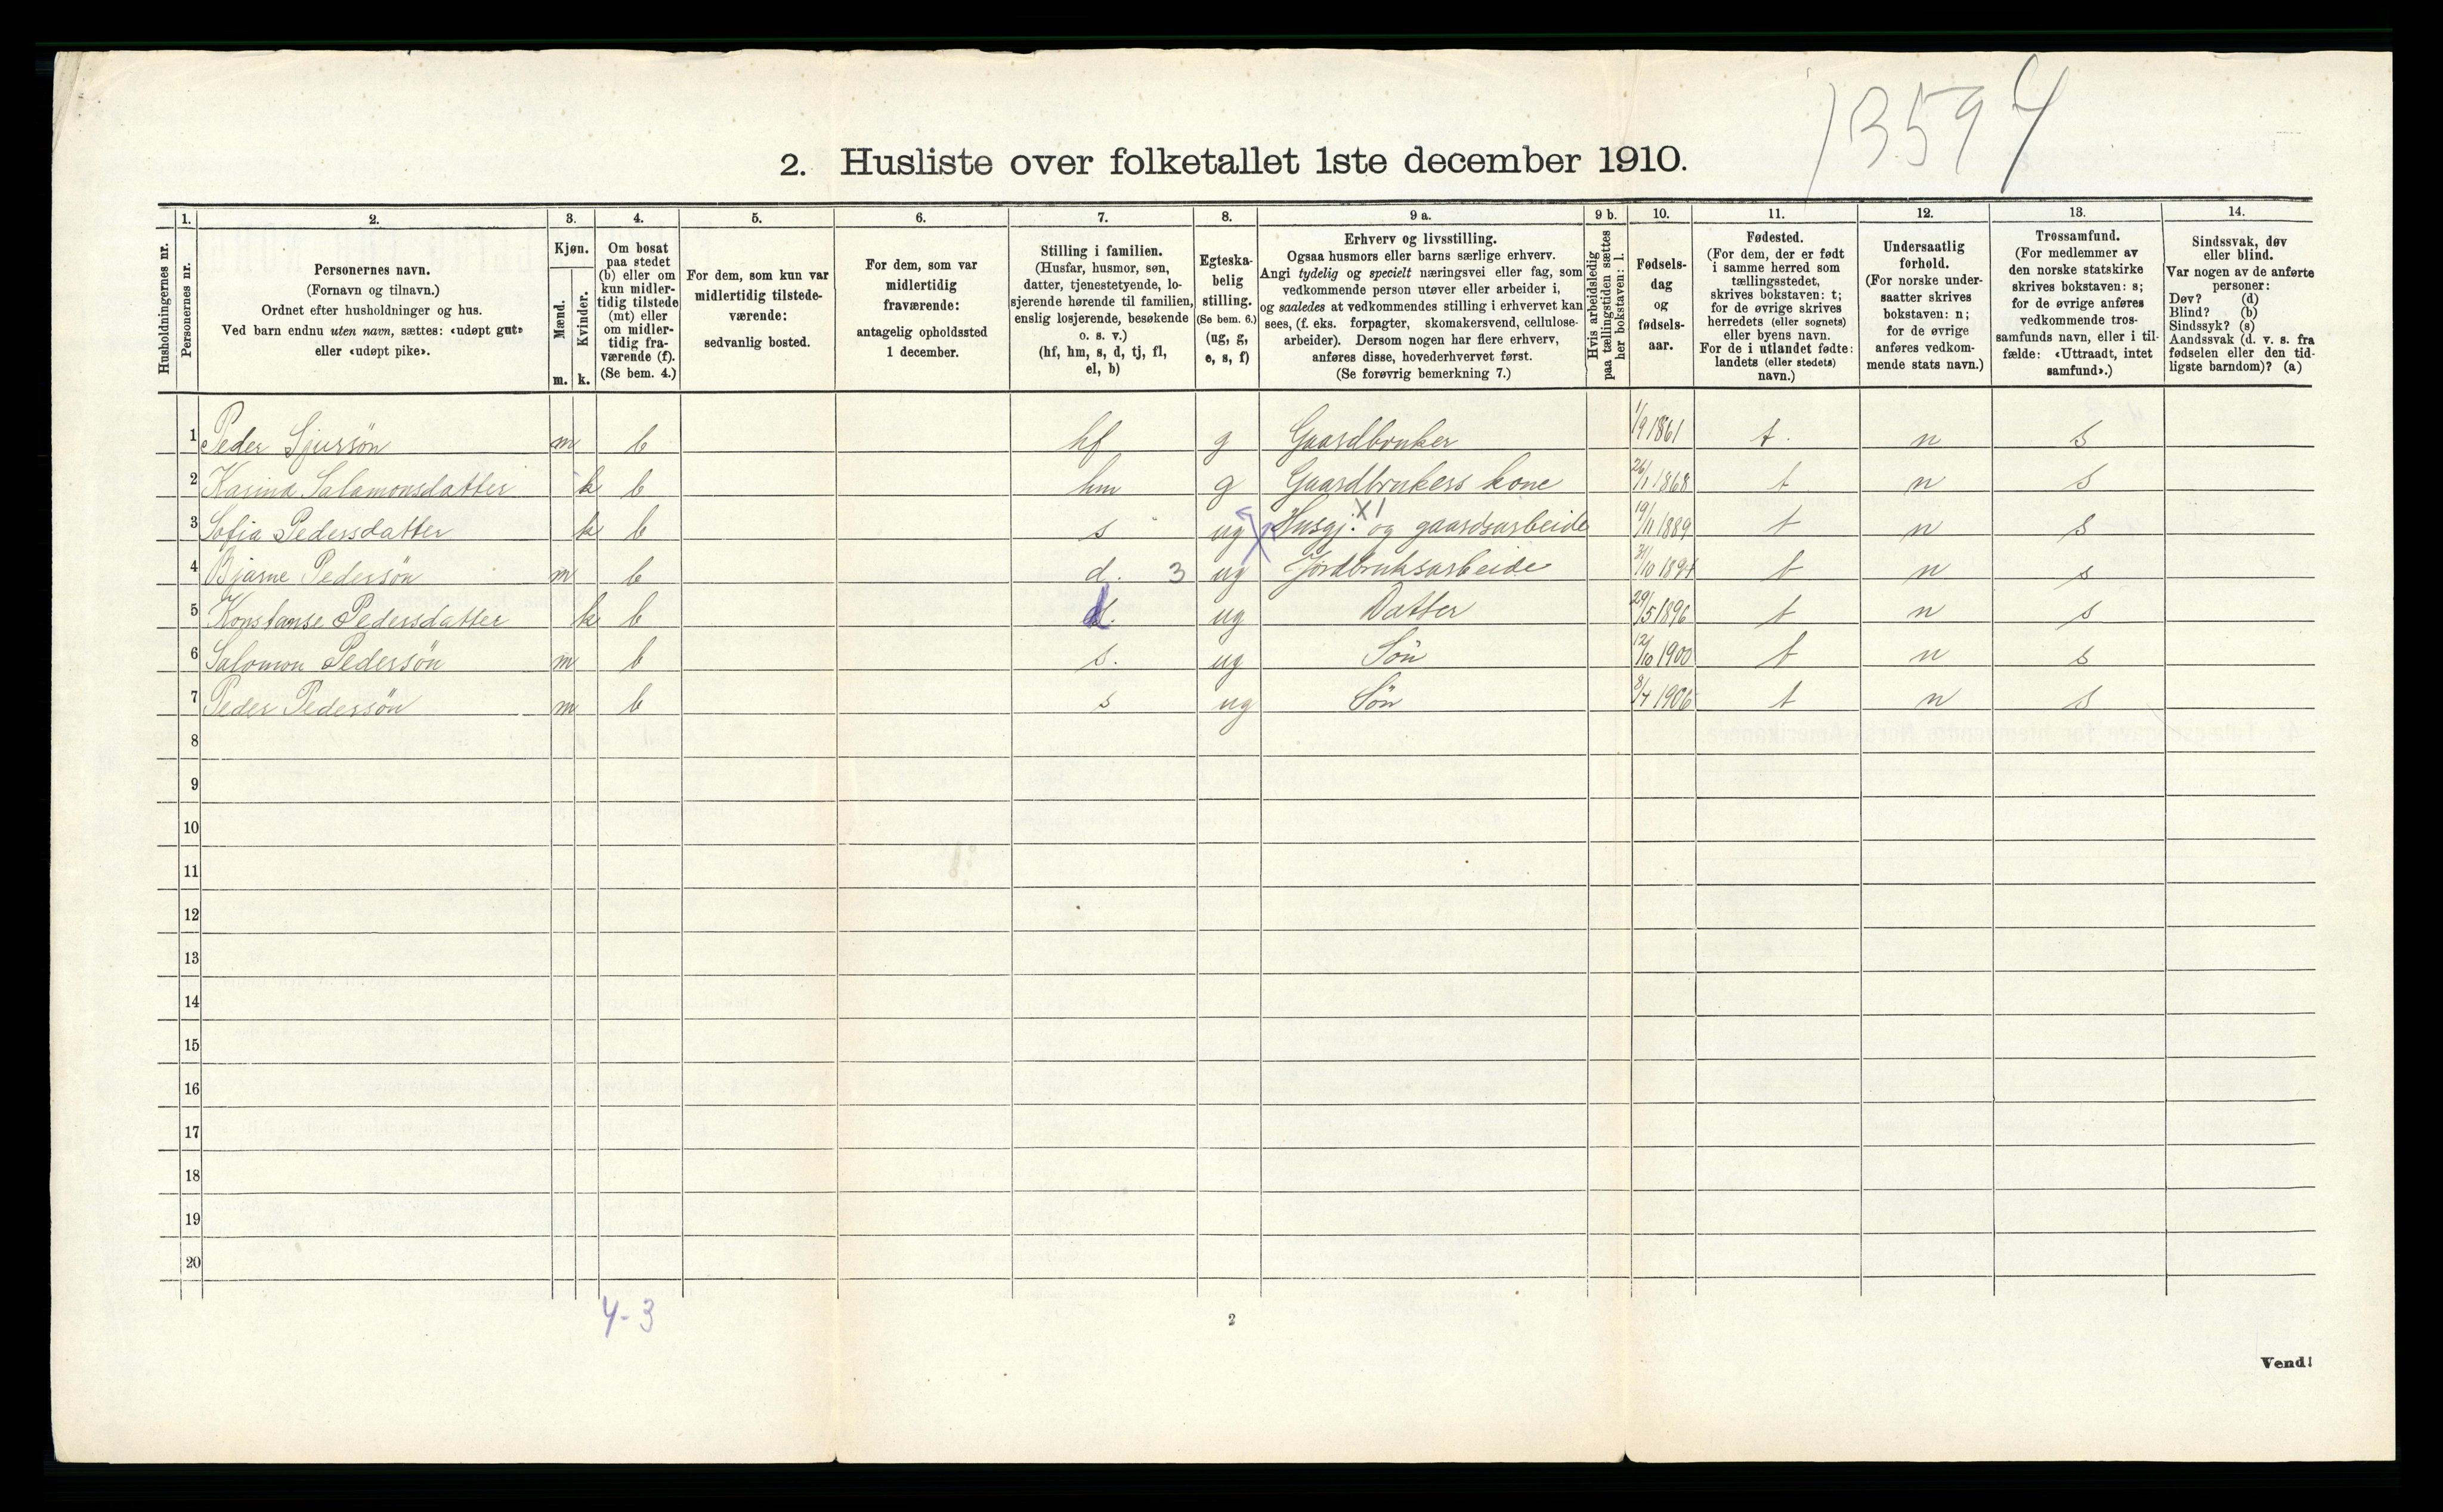 13594
2. Husliste over folketallet 1ste december 1910.
Husholdningernes nr.
1.
Personernes nr.
2.
Personernes navn.
(Fornavn og tilnavn.)
Ordnet efter husholdninger og hus.
Ved barn endnu uten navn, sættes: «udøpt gut»
eller «udøpt pike».
3.
Kjøn.
Mænd.
m.
Kvinder.
k.
4.
Om bosat
paa stedet
(b) eller om
kun midler-
tidig tilstede
(mt) eller
om midler-
tidig fra-
værende (f).
(Se bem. 4.)
5.
For dem, som kun var
midlertidig tilstede-
værende:
sedvanlig bosted.
6.
For dem, som var
midlertidig
fraværende:
antagelig opholdssted
1 december.
7.
Stilling i familien.
(Husfar, husmor, søn,
datter, tjenestetyende, lo-
sjerende hørende til familien,
enslig losjerende, besøkende
o. s. v.)
(hf, hm, s, d, tj, fl,
el, b)
8.
Egteska-
belig
stilling.
(Se bem. 6.)
(ug, g,
e, s, f)
9 a.
Erhverv og livsstilling.
Ogsaa husmors eller barns særlige erhverv.
Angi tydelig og specielt næringsvei eller fag, som
vedkommende person utøver eller arbeider i,
og saaledes at vedkommendes stilling i erhvervet kan
sees, (f. eks. forpagter, skomakersvend, cellulose-
arbeider). Dersom nogen har flere erhverv,
anføres disse, hovederhvervet først.
(Se forøvrig bemerkning 7.)
9 b.
Hvis arbeidsledig
paa tællingstiden sættes
her bokstaven: l.
10.
Fødsels-
dag
og
fødsels-
aar.
11.
Fødested.
(For dem, der er født
i samme herred som
tællingsstedet,
skrives bokstaven: t;
for de øvrige skrives
herredets (eller sognets)
eller byens navn.
For de i utlandet fødte:
landets (eller stedets)
navn.)
12.
Undersaatlig
forhold.
(For norske under-
saatter skrives
bokstaven: n;
for de øvrige
anføres vedkom-
mende stats navn.)
13.
Trossamfund.
(For medlemmer av
den norske statskirke
skrives bokstaven: s;
for de øvrige anføres
vedkommende tros-
samfunds navn, eller i til-
fælde: «Uttraadt, intet
samfund».)
14.
Sindssvak, døv
eller blind.
Var nogen av de anførte
personer:
Døv? (d)
Blind? (b)
Sindssyk? (s)
Aandssvak (d. v. s. fra
fødselen eller den tid-
ligste barndom)? (a)
1 Peder Sjursön m b hf g Gaardbruker 1/9 1861 t. n s
2 Karina Salamonsdatter k b hm g Gaardbrukers kone 26/1 1868 t n s
3 Sofia Pedersdatter k b s ug Husgj. X1 og gaardsarbeide 19/11 1889 t n s
4 Bjarne Pedersön m b d. 3 ug Jordbruksarbeide 31/10 1894 t n s
5 Konstanse Pedersdatter k b d. ug Datter 29/5 1896 t n s
6 Salomon Pedersön m b s. ug Sön 12/10 1900 t n s
7 Peder Pedersön m b s ug Sön 8/4 1906 t n s
8
9
10
11
12
13
14
15
16
17
18
19
20
4-3
2
Vend!